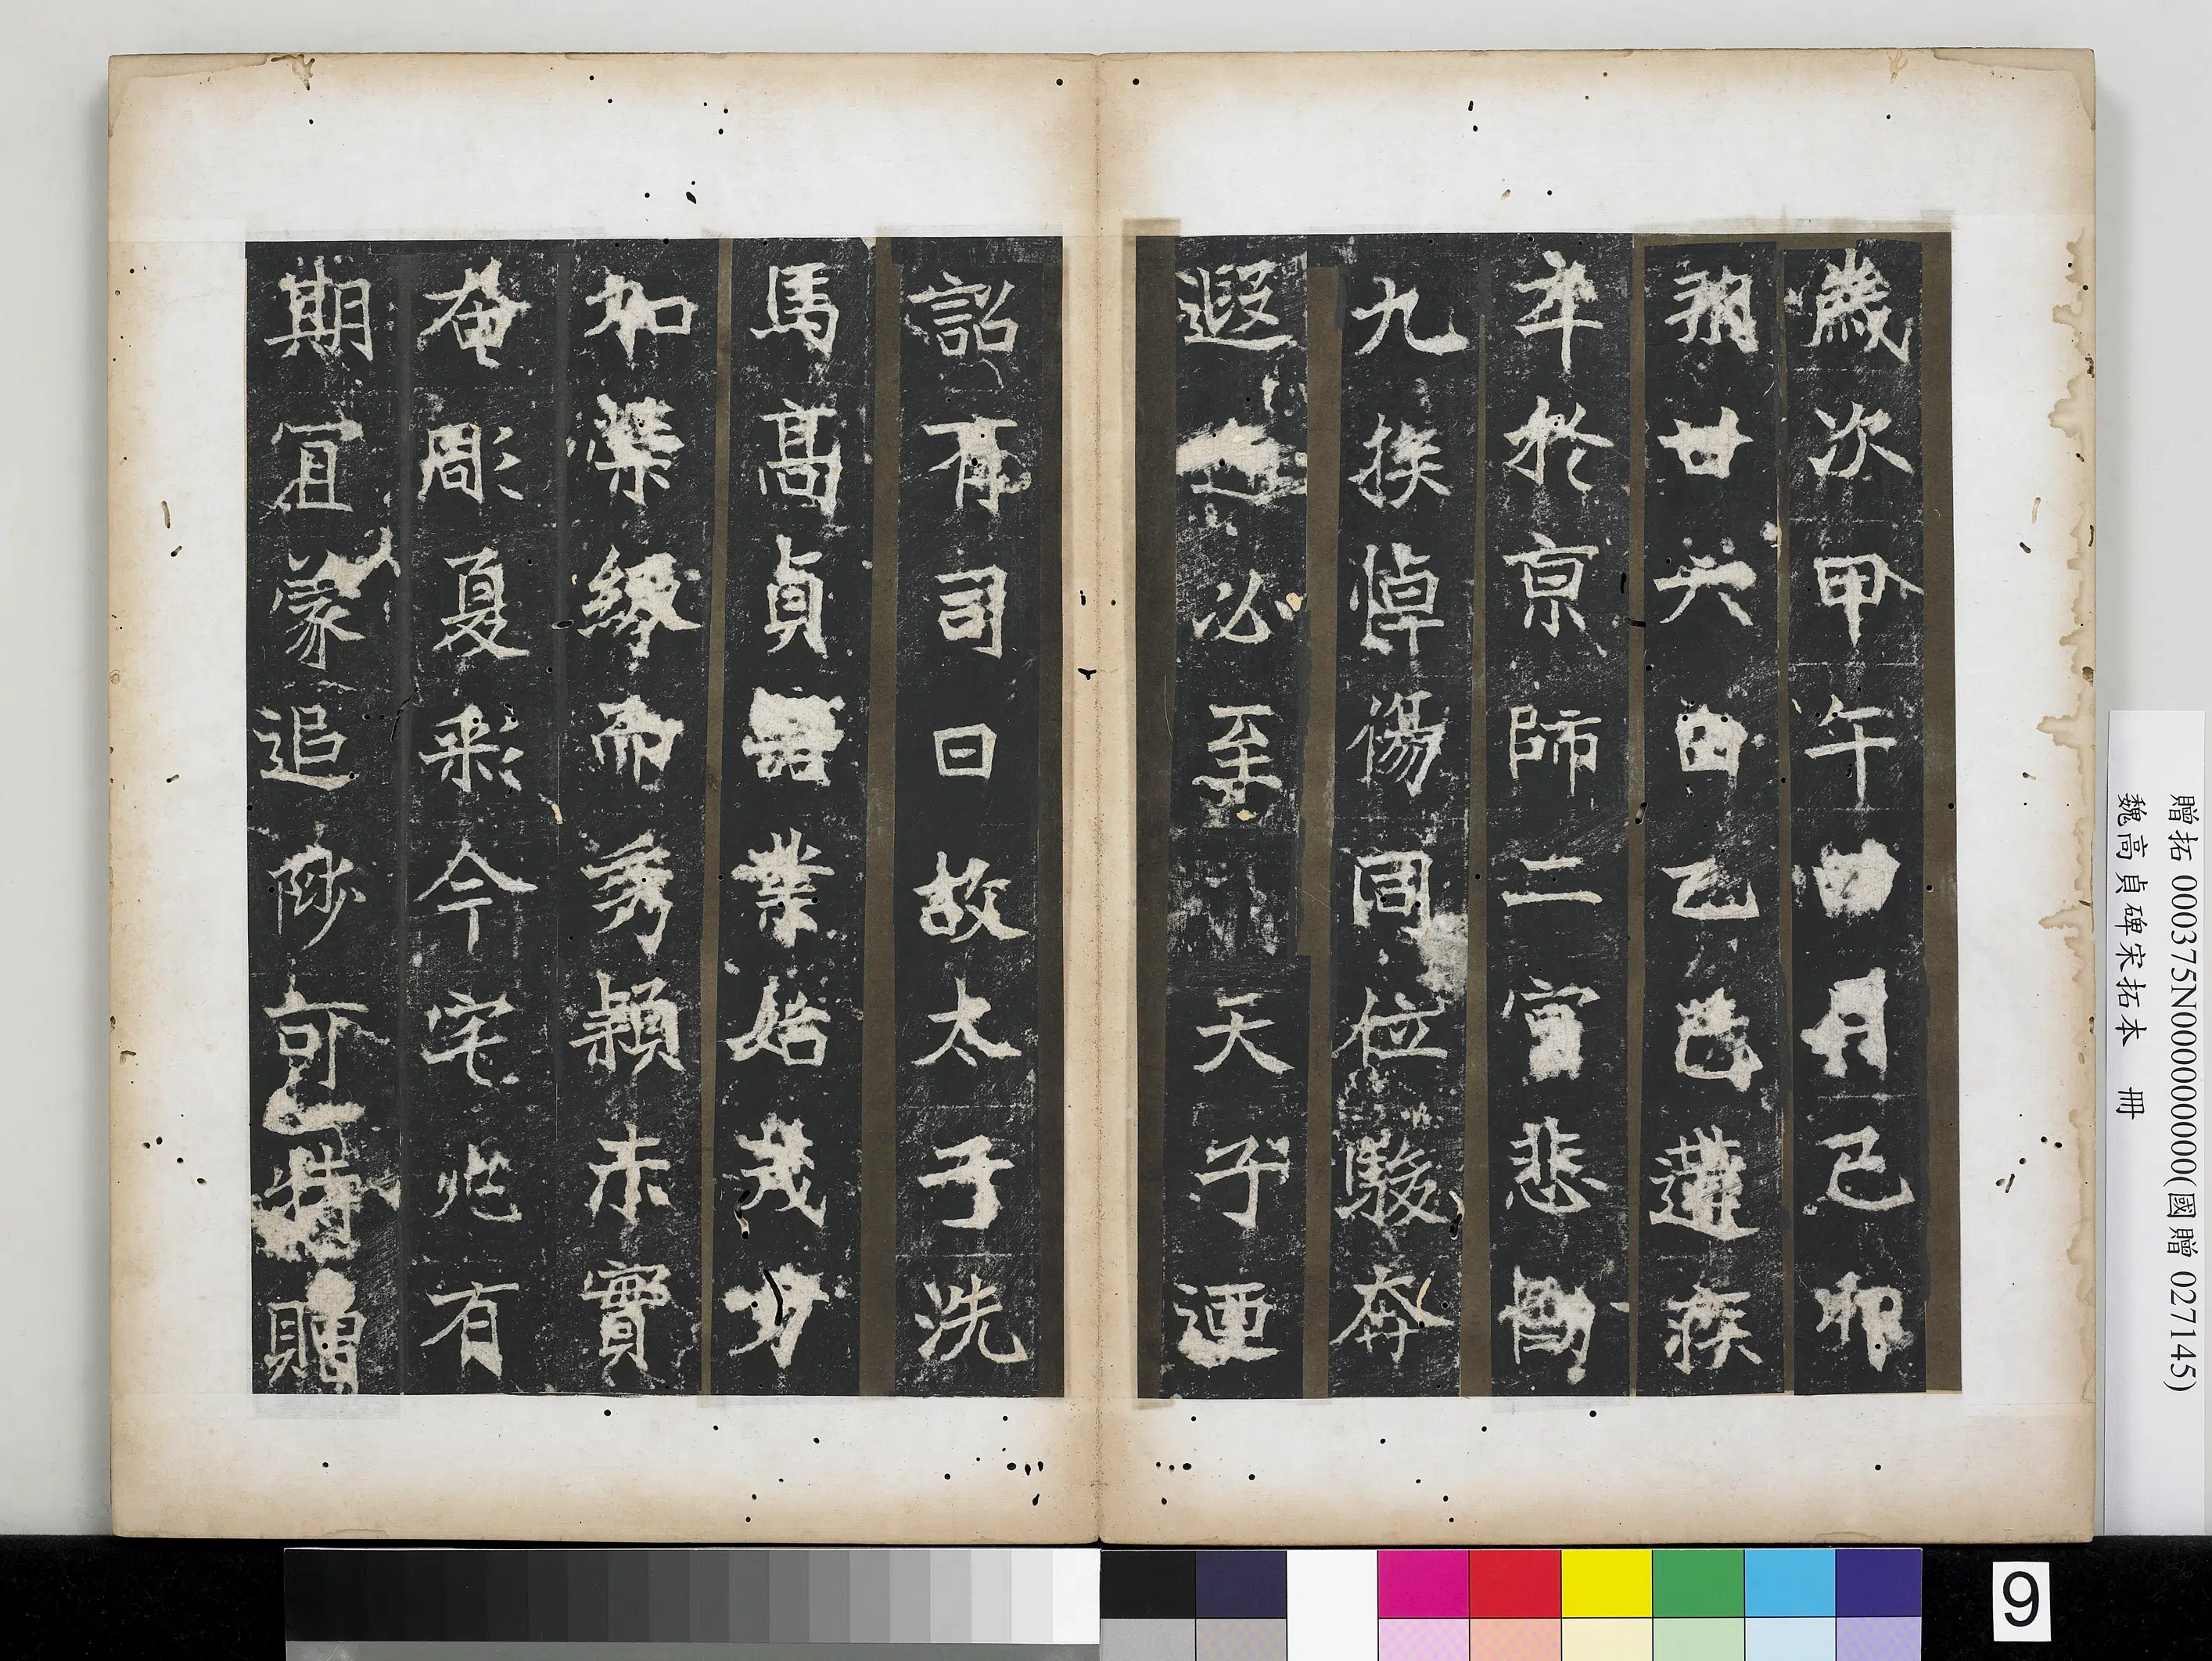 歲次甲午四月己卯
朔廿六日乙巳遘疾
卒於京師二宮悲慟
九族悼傷同位駿奔
遐邇必至 天子迺
詔有司曰故太子洗
馬高貞器業始茂方
加榮級而秀穎未實
奄彫夏彩今宅兆有
期宜蒙追陟可特贈
贈拓 000375N000000000(國贈 027145)
魏高貞碑宋拓本 冊
9